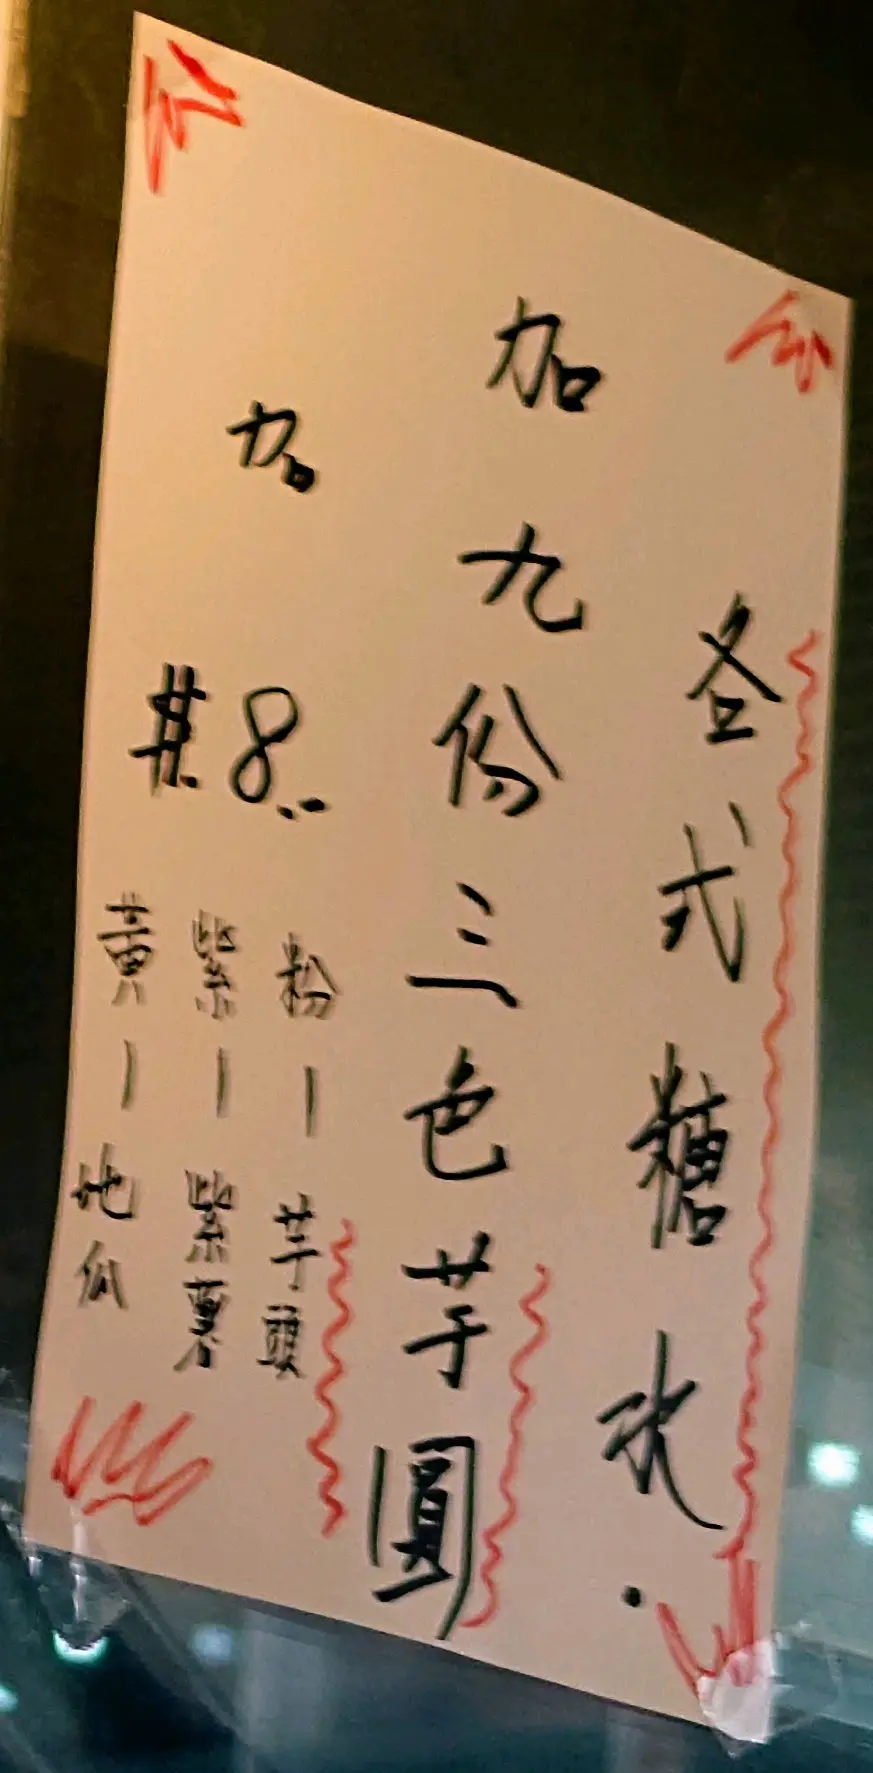 各式糖水.
加九份三色芋圓
加8..
粉—芋頭
紫—紫薯
黃—地瓜